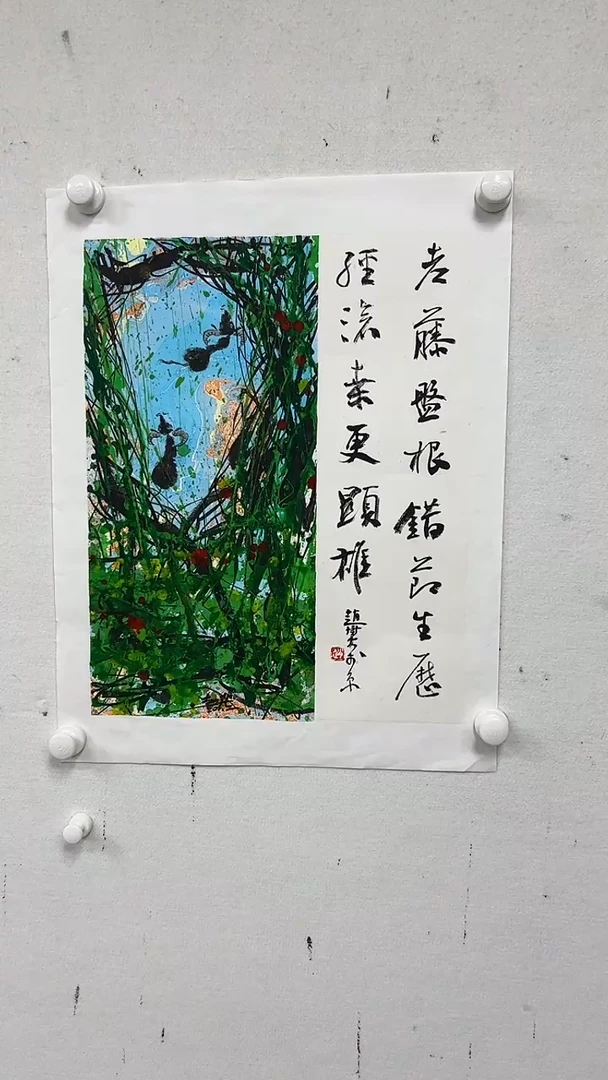 老藤盤根錯节生歷
經滄桑更顯雄